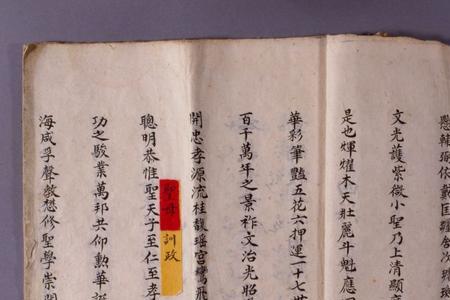 依戴匡
文光護紫微小聖乃上清顯
是也輝耀木天壯麗斗魁應
華彩筆豔五花六押運一十七世
百千萬年之景祚文治光昭
開忠孝源流桂馥瑤宮鸞飛
聖母訓政
聰明恭惟聖天子至仁至孝
功之駿業萬邦共仰勲華
海咸孚聲敎懋修聖學崇